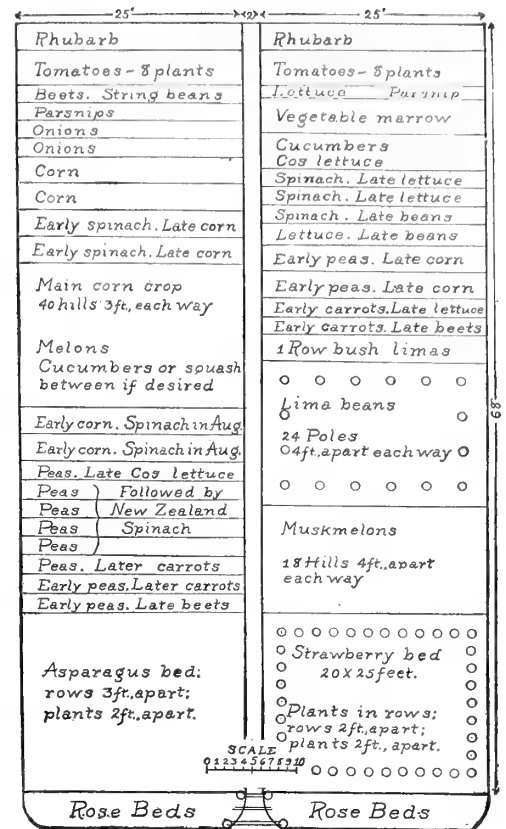 25' 2' 25'
Rhubarb
Tomatoes - 8 plants
Beets. String beans
Parsnips
Onions
Onions
Corn
Corn
Early spinach. Late corn
Early spinach. Late corn
Main corn crop
40 hills 3ft., each way
Melons
Cucumbers or squash
between if desired
Early corn. Spinach in Aug.
Early corn. Spinach in Aug.
Peas. Late Cos lettuce
Peas Followed by
Peas New Zealand
Peas Spinach
Peas
Peas. Later carrots
Early peas. Later carrots
Early peas. Late beets
Asparagus bed;
rows 3ft., apart;
plants 2ft., apart.
Rhubarb
Tomatoes - 8 plants
Lettuce Parsnip
Vegetable marrow
Cucumbers
Cos lettuce
Spinach. Late lettuce
Spinach. Late lettuce
Spinach. Late beans
Lettuce. Late beans
Early peas. Late corn
Early peas. Late corn
Early carrots. Late lettuce
Early carrots. Late beets
1 Row bush limas
Lima beans
24 Poles
4ft., apart each way
Muskmelons
18 Hills 4ft., apart
each way
Strawberry bed
20 X 25 feet.
Plants in rows;
rows 2ft., apart;
plants 2ft., apart.
68'
SCALE
0 1 2 3 4 5 6 7 8 9 10
Rose Beds Rose Beds